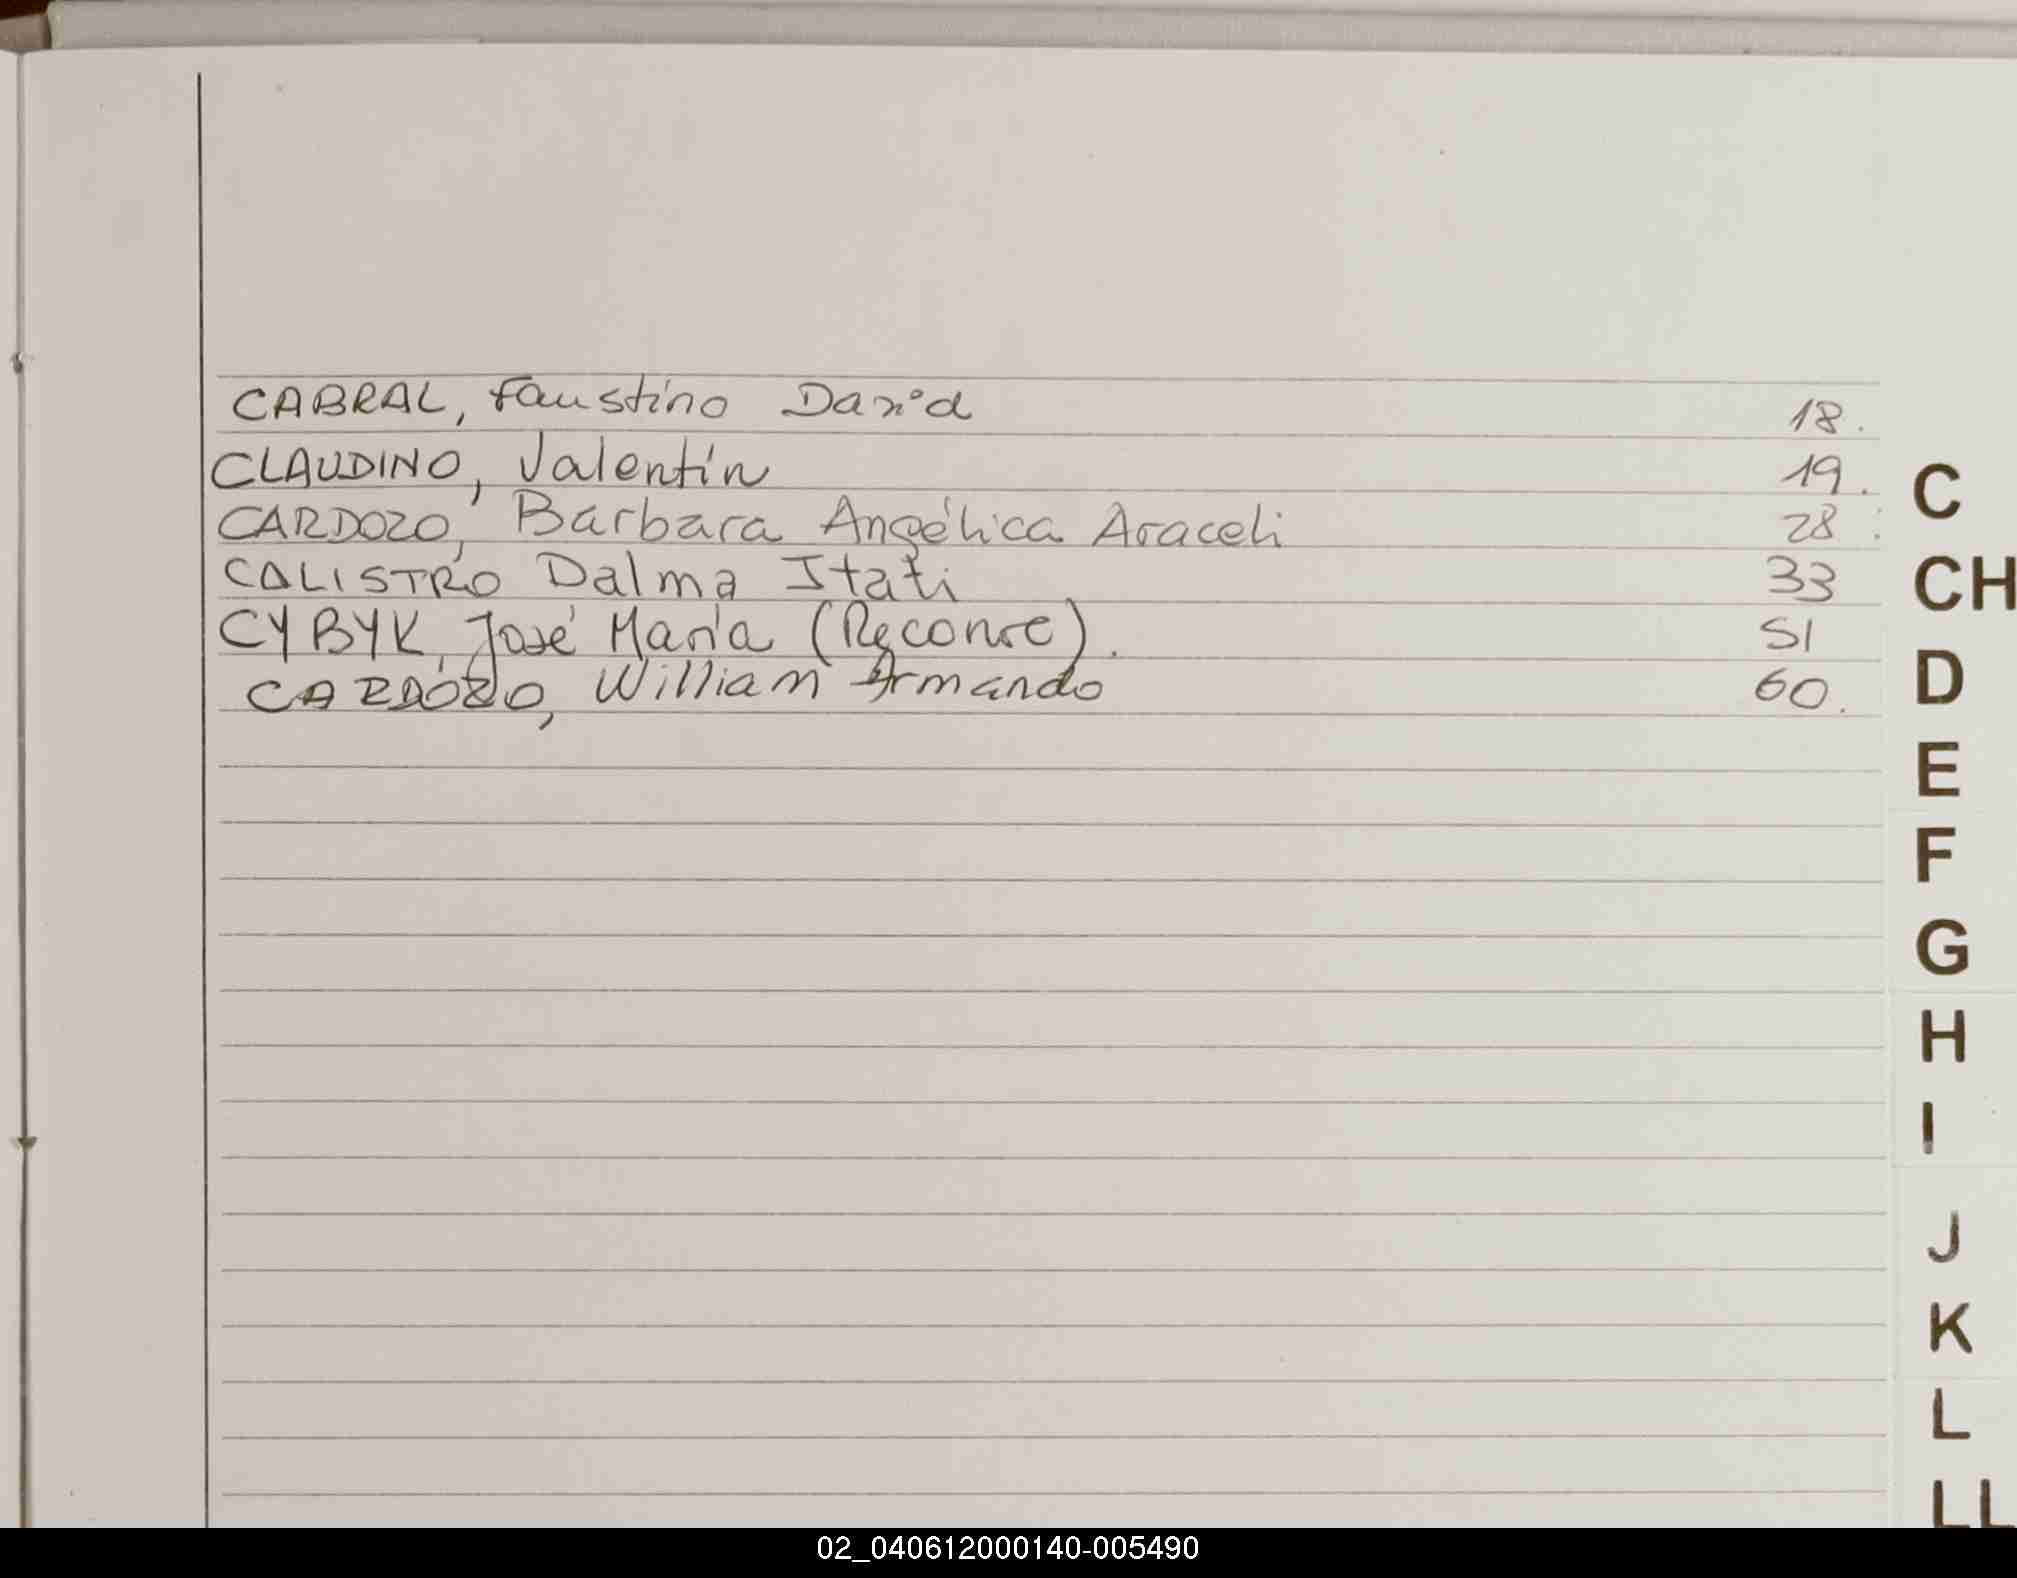 CABRAL, Faustino David 18.
CLAUDINO, Valentín 19.
CARDOZO, Bárbara Angélica Araceli 28.
CALISTRO Dalma Itati 33
CYBYK, José María (Reconoc). 51
CARDOZO, William Armando 60.
C
CH
D
E
F
G
H
I
J
K
L
LL
02_040612000140-005490